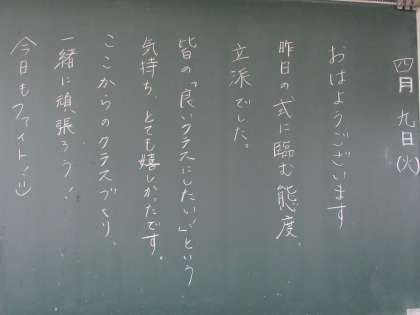 四月九日(火)
おはようございます
昨日の式に臨む態度、
立派でした。
皆の「良いクラスにしたい!」という
気持ち、とても嬉しかったです。
ここからのクラスづくり、
一緒に頑張ろう!
今日もファイト!!